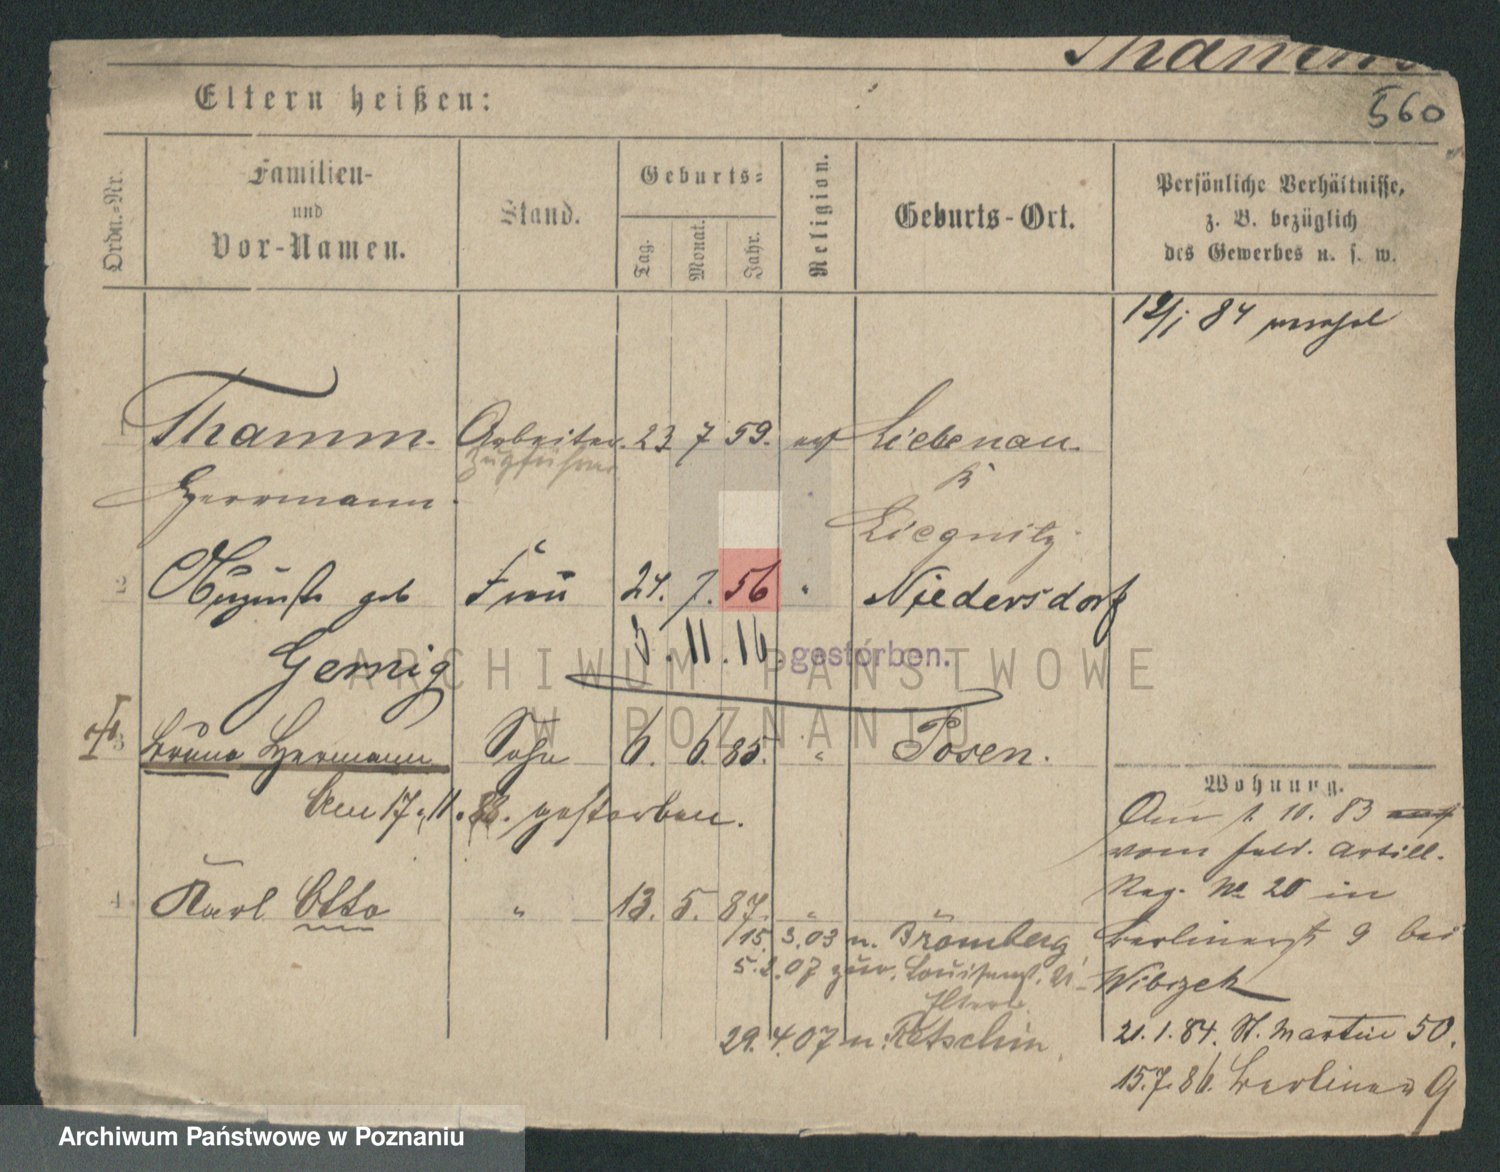 Thamm
560
Eltern heißen:
Ordn.-Nr.
Familien-
und
Vor-Namen.
Stand.
Geburts-
Tag.
Monat.
Jahr.
Religion.
Geburts-Ort.
Persönliche Verhältnisse,
z. B. bezüglich
des Gewerbes u. s. w.
84
1 Thamm. Arbeiter. 23 7 59. Liebenau.
Zugführer
Herrmann. K
Liegnitz
2 Auguste geb Frau 24. 7. 56 " Niedersdorf
Gernig 3. 11. 16. gestorben.
3 Bruno Hermann Sohn 6. 6. 85. " Posen.
den 17. 11. 88. gestorben.
4. Karl Otto " 13. 5. 87. "
15. 3. 03 n. Bromberg
07 zur.
29. 4. 07 n.
Wohnung.
Am 1. 10. 83
vom Feld. Artill.
Reg. No 20 in
Berlinerst 9 bei
21. 1. 84. St. Martin 50.
15. 7. 86. Berliner 9
ARCHIWUM PAŃSTWOWE
W POZNANIU
Archiwum Państwowe w Poznaniu